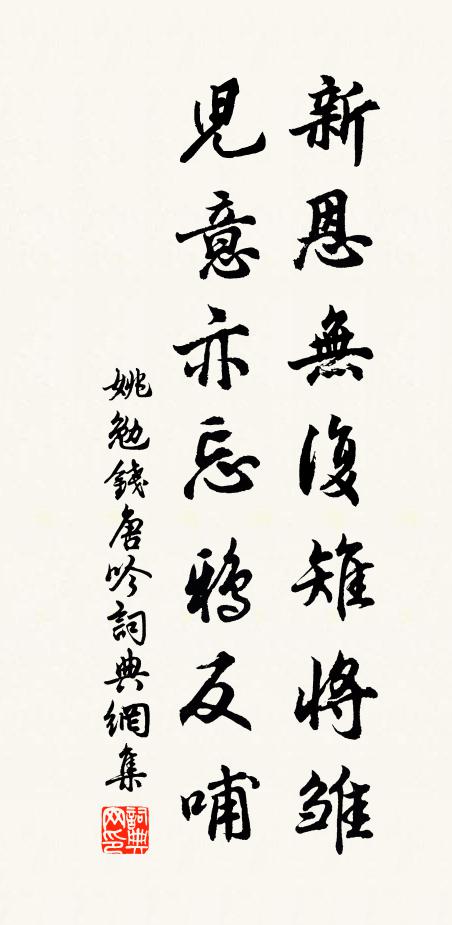 新恩無復雉將雏
児意亦忘鴉反哺
姚勉錢唐吟詞典網集
詞典网印